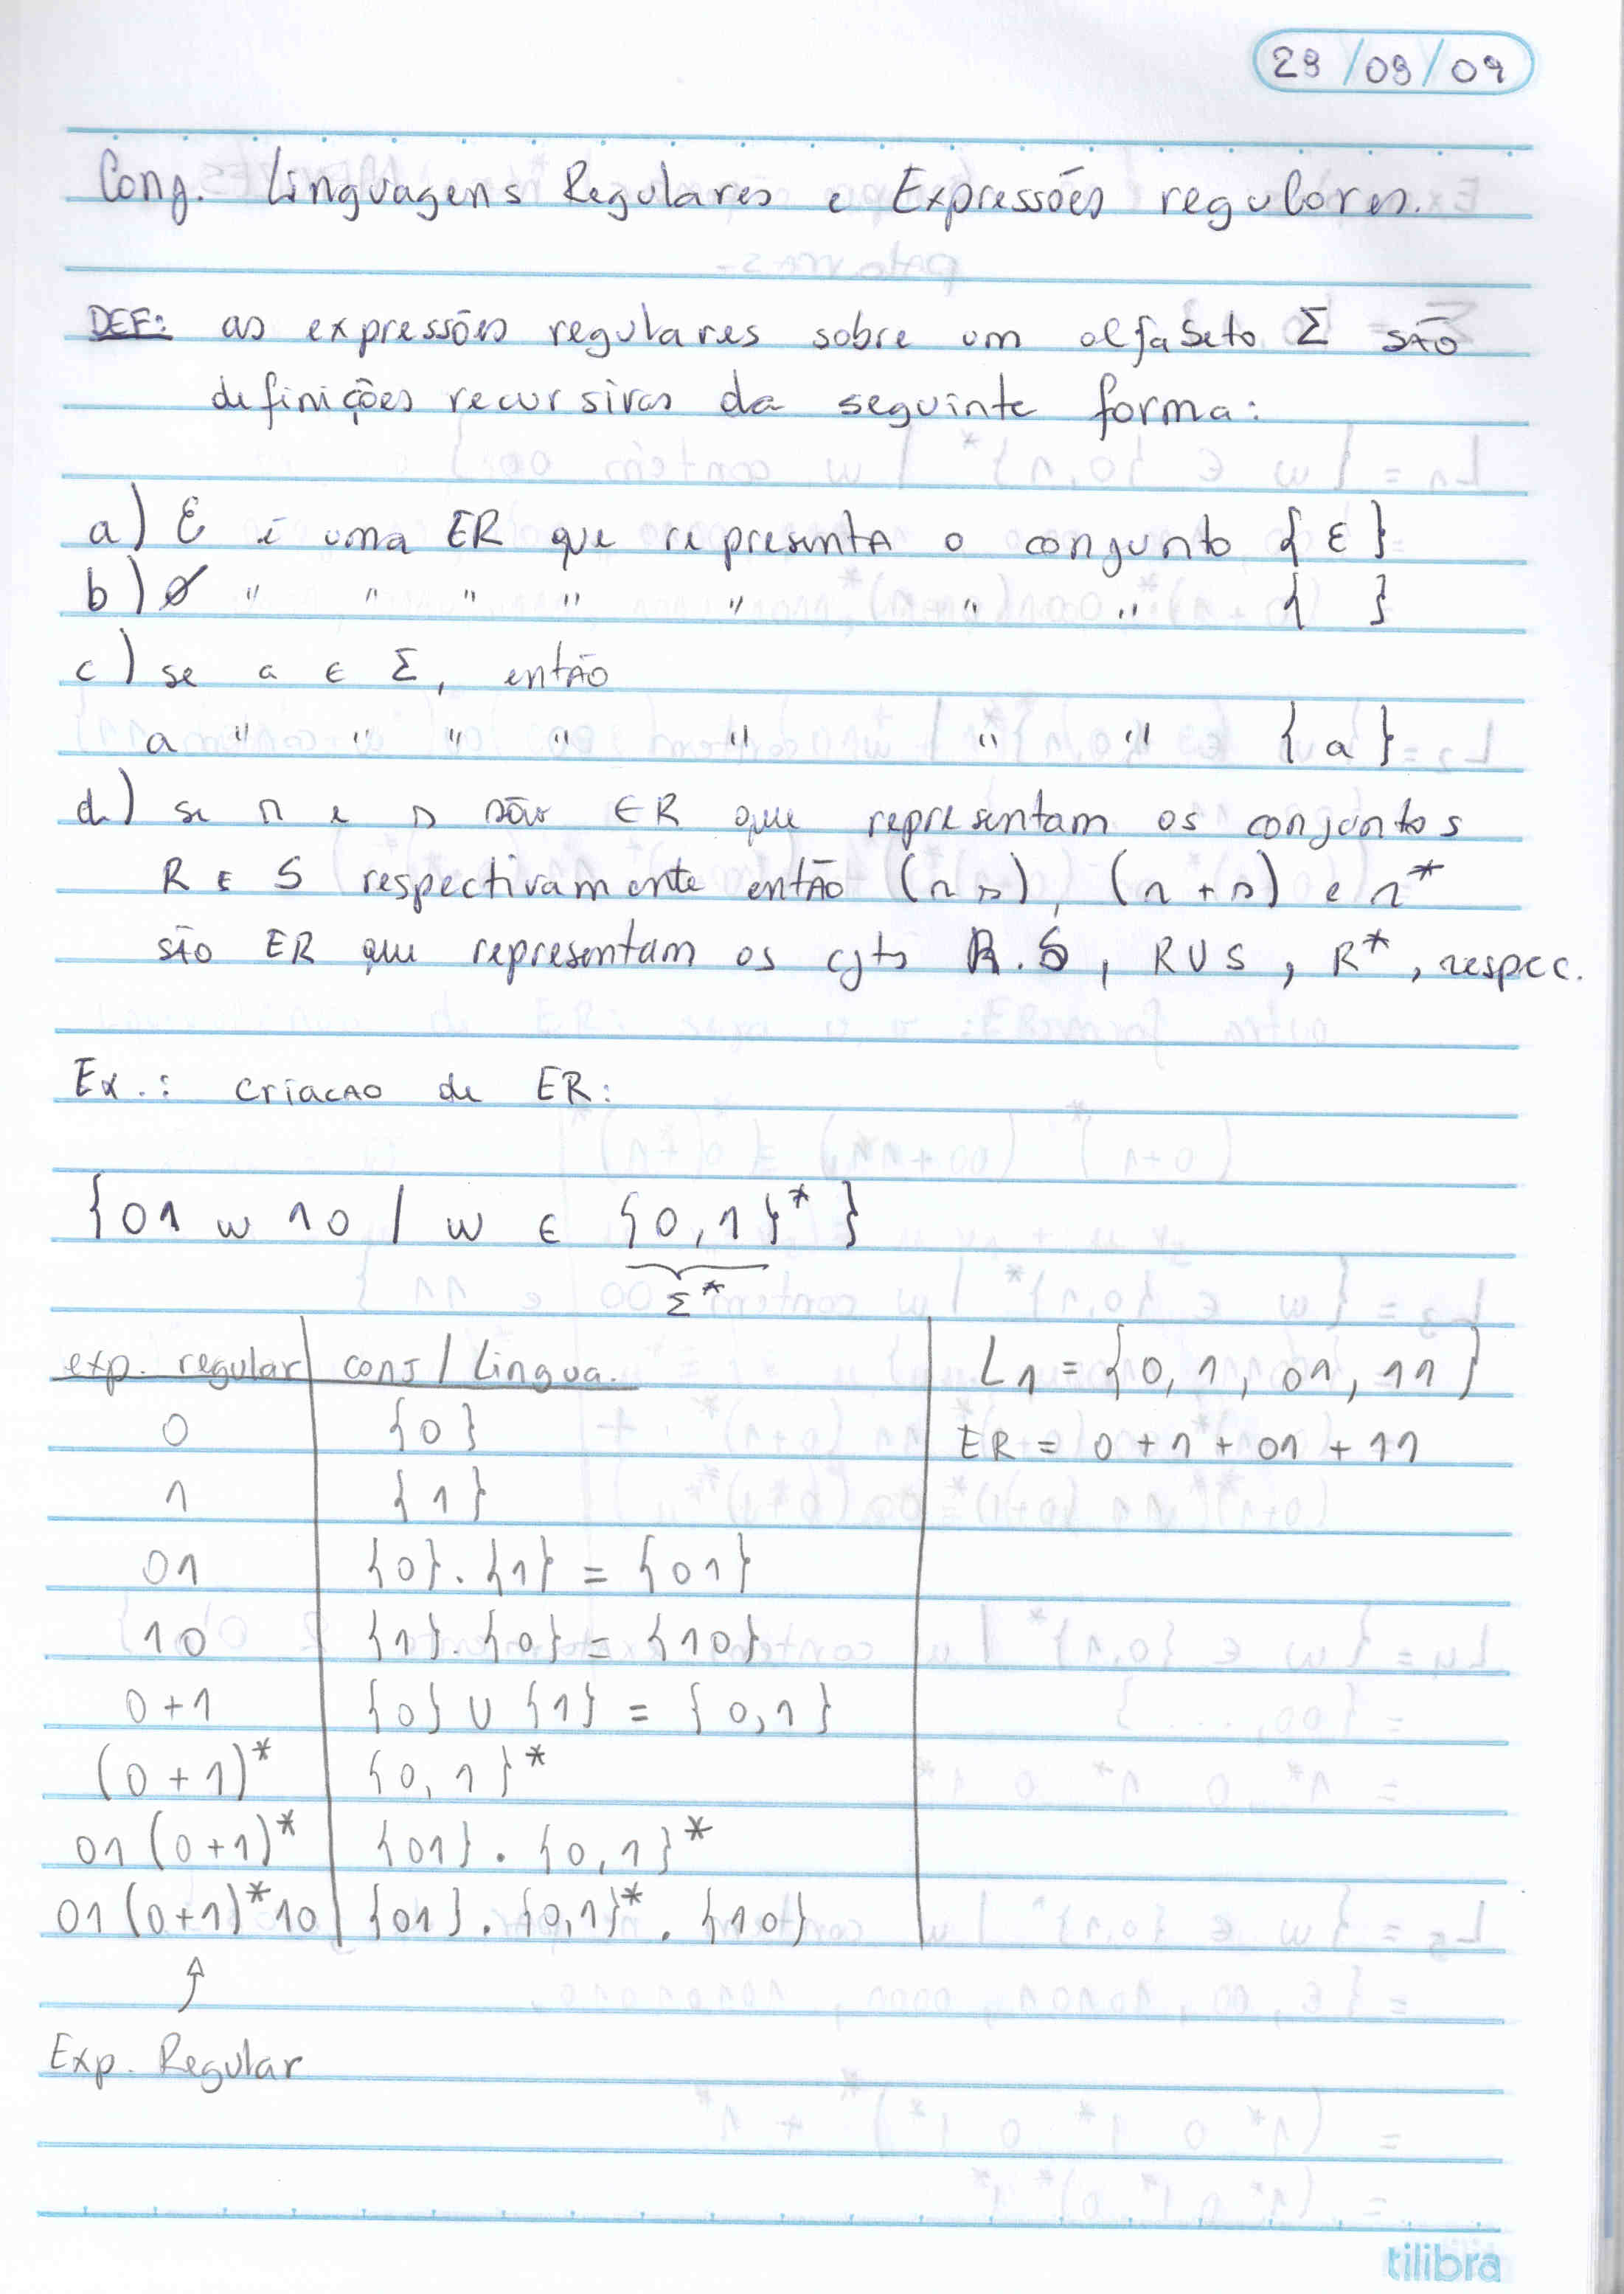 29/09/09
Conj. Linguagens Regulares e Expressões regulares.
DEF: as expressões regulares sobre um alfabeto Σ são
definições recursivas da seguinte forma:
a) ε é uma ER que representa o conjunto { ε }
b) ∅ " " " " " " " { }
c) se a ∈ Σ, então
a " " " " " " " { a }
d) se r e s são ER que representam os conjuntos
R e S respectivamente então (r s), (r + s) e r*
são ER que representam os cjts R.S, R∪S, R*, respec.
Ex.: criacao de ER:
{01 w 10 / w ∈ {0,1}* }
Σ*
exp. regular | conj / Lingua. | L1 = {0, 1, 01, 11}
0 | {0} | ER = 0 + 1 + 01 + 11
1 | {1}
01 | {0}.{1} = {01}
10 | {1}.{0} = {10}
0+1 | {0} ∪ {1} = {0,1}
(0+1)* | {0,1}*
01(0+1)* | {01}.{0,1}*
01(0+1)*10 | {01}.{0,1}*.{10}
↑
Exp. Regular
tilibra